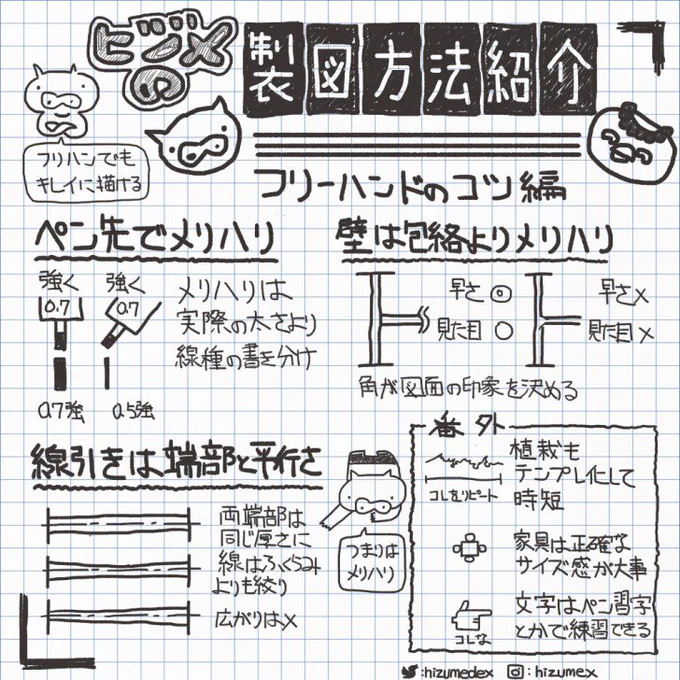 ヒヅメの
製図方法紹介
フリハンでも
キレイに描ける
フリーハンドのコツ編
ペン先でメリハリ
強く
0.7
0.7強
強く
0.7
0.5強
メリハリは
実際の太さより
線種の書き分け
壁は包絡よりメリハリ
早さ◎
見た目○
早さ×
見た目×
角が図面の印象を決める
線引きは端部と平行さ
両端部は
同じ厚さに
線はふくらみ
よりも絞り
広がりは×
つまりは
メリハリ
番外
コレをリピート
植栽も
テンプレ化して
時短
家具は正確な
サイズ感が大事
コレな
文字はペン習字
とかで練習できる
:hizumedex
:hizumex